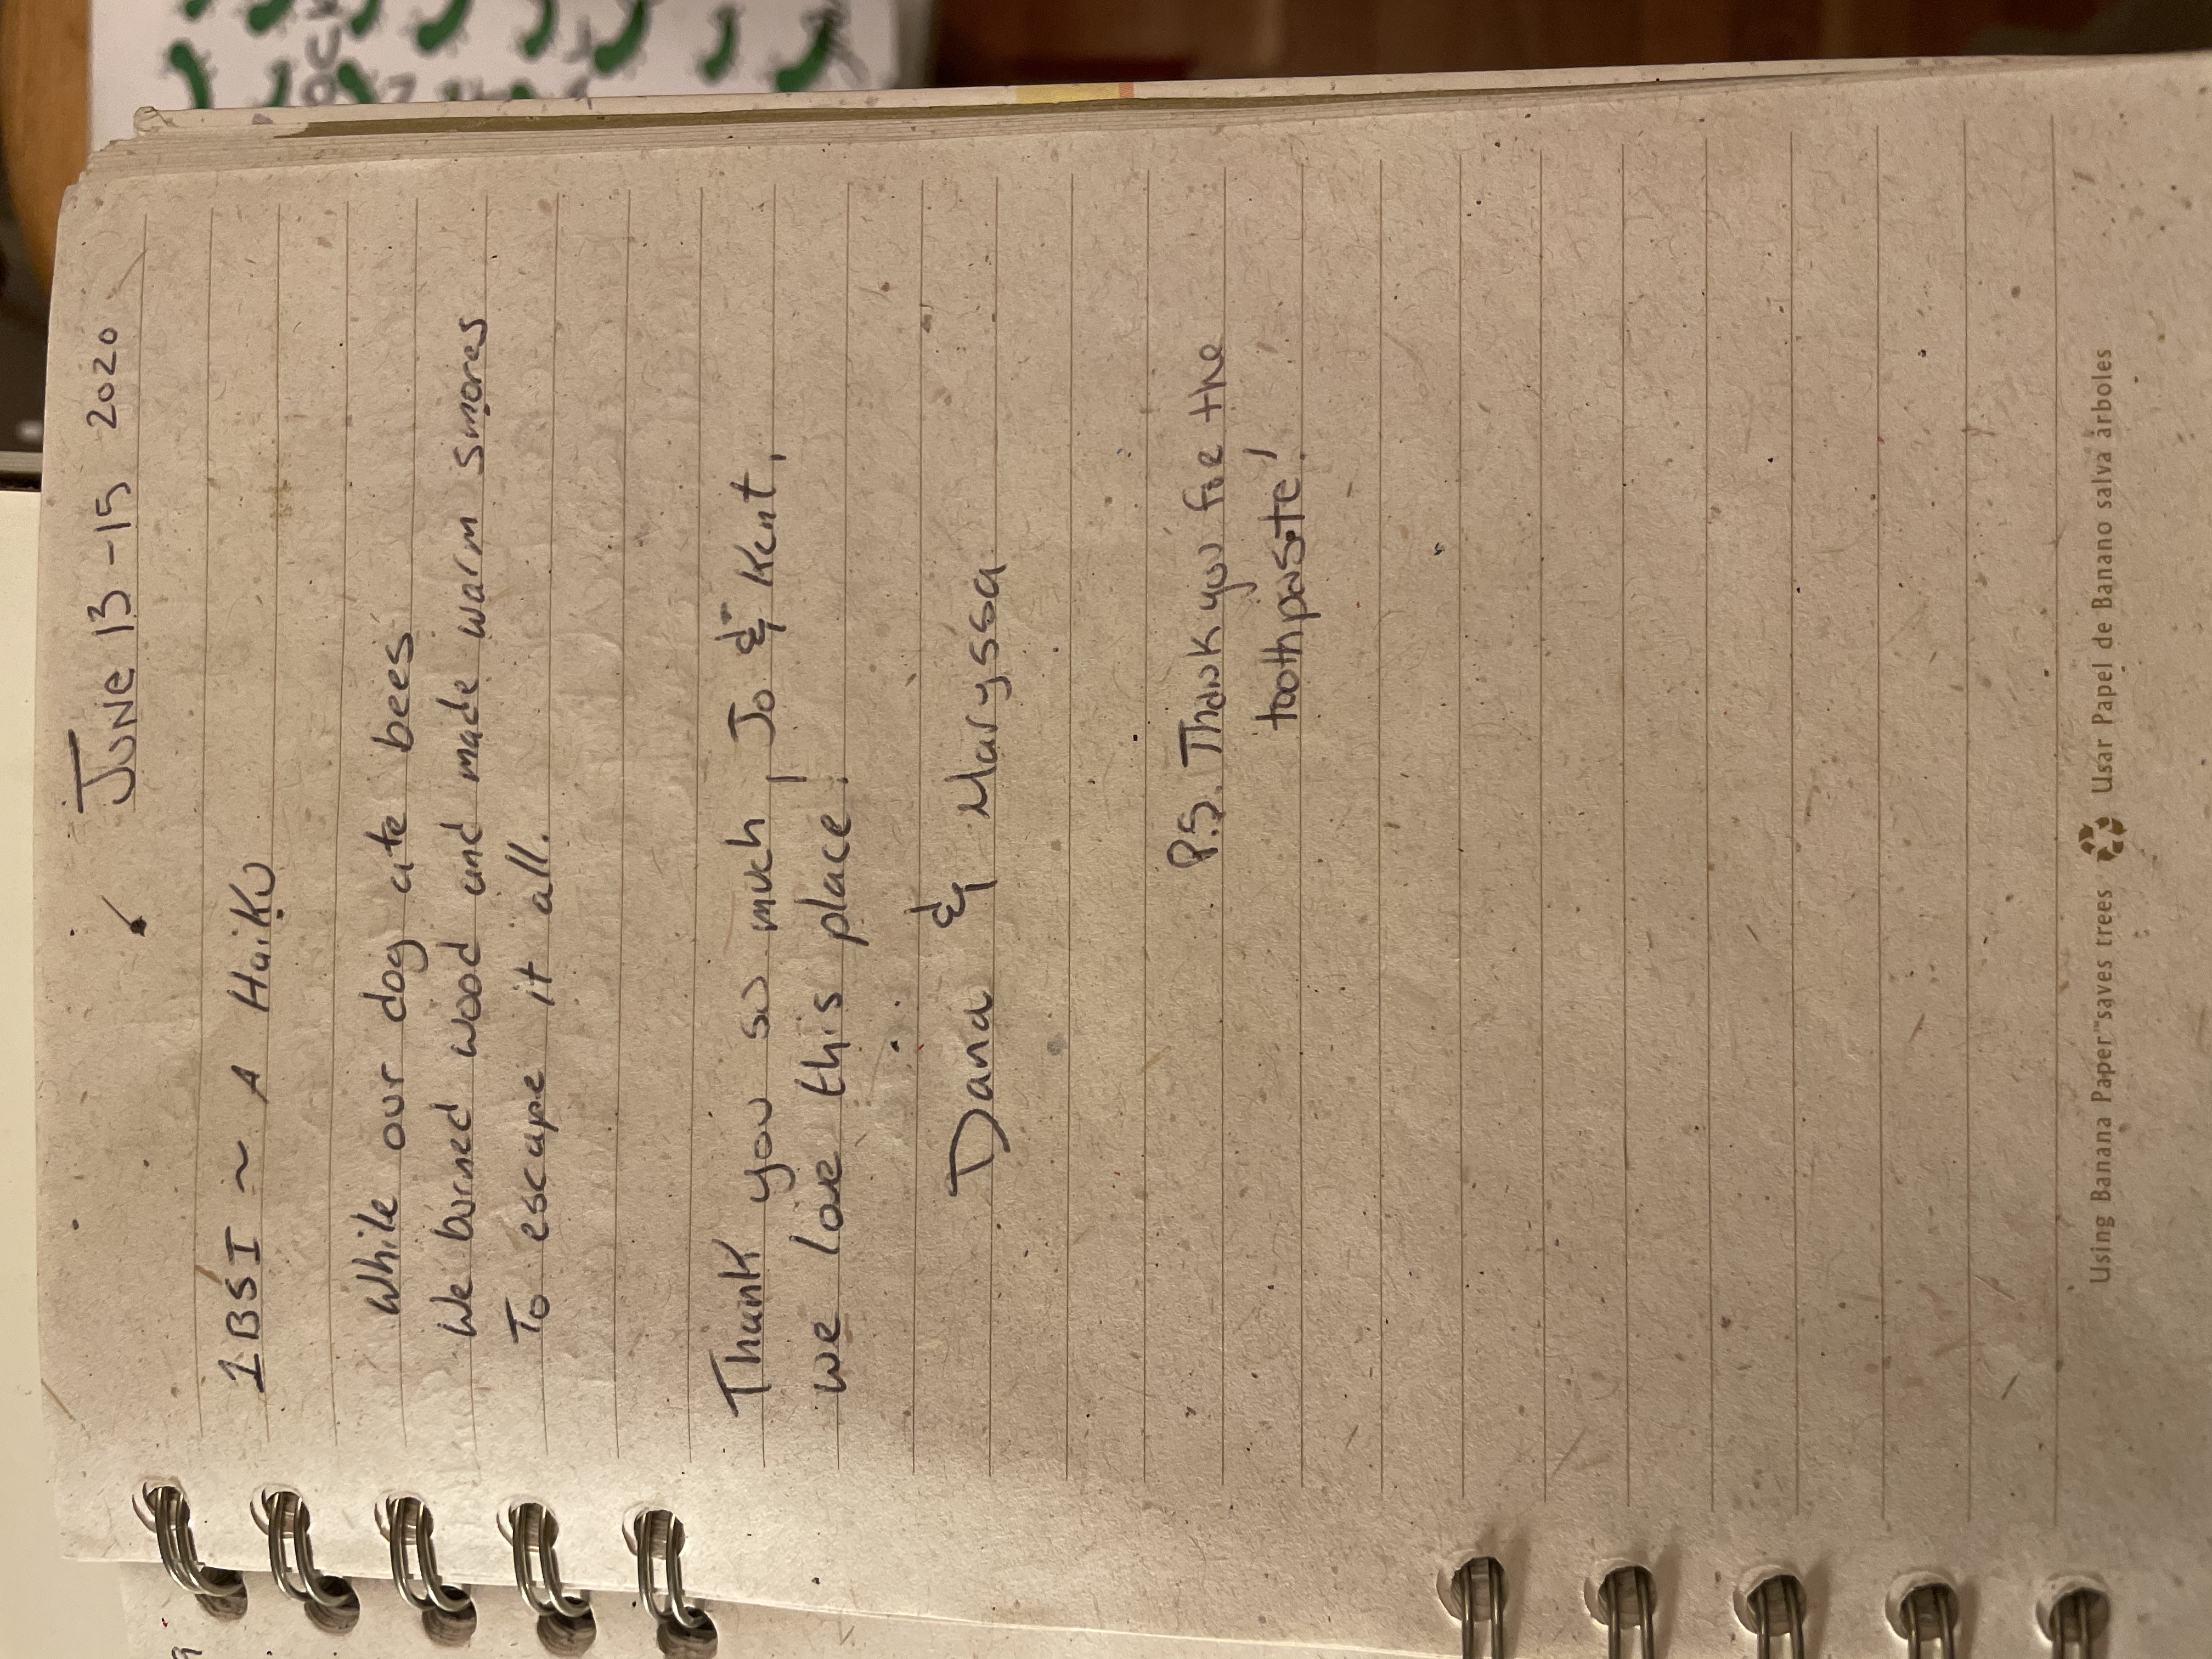 June 13-15 2020
1BSI ~ A Haiku
While our dog ate bees
We burned wood and made warm smores
To escape it all.
Thank you so much, Jo & Kent,
we love this place!
Dana & Maryssa
P.S. Thank you for the
toothpaste!
Using Banana Paper™ saves trees ♻ Usar Papel de Banano salva árboles